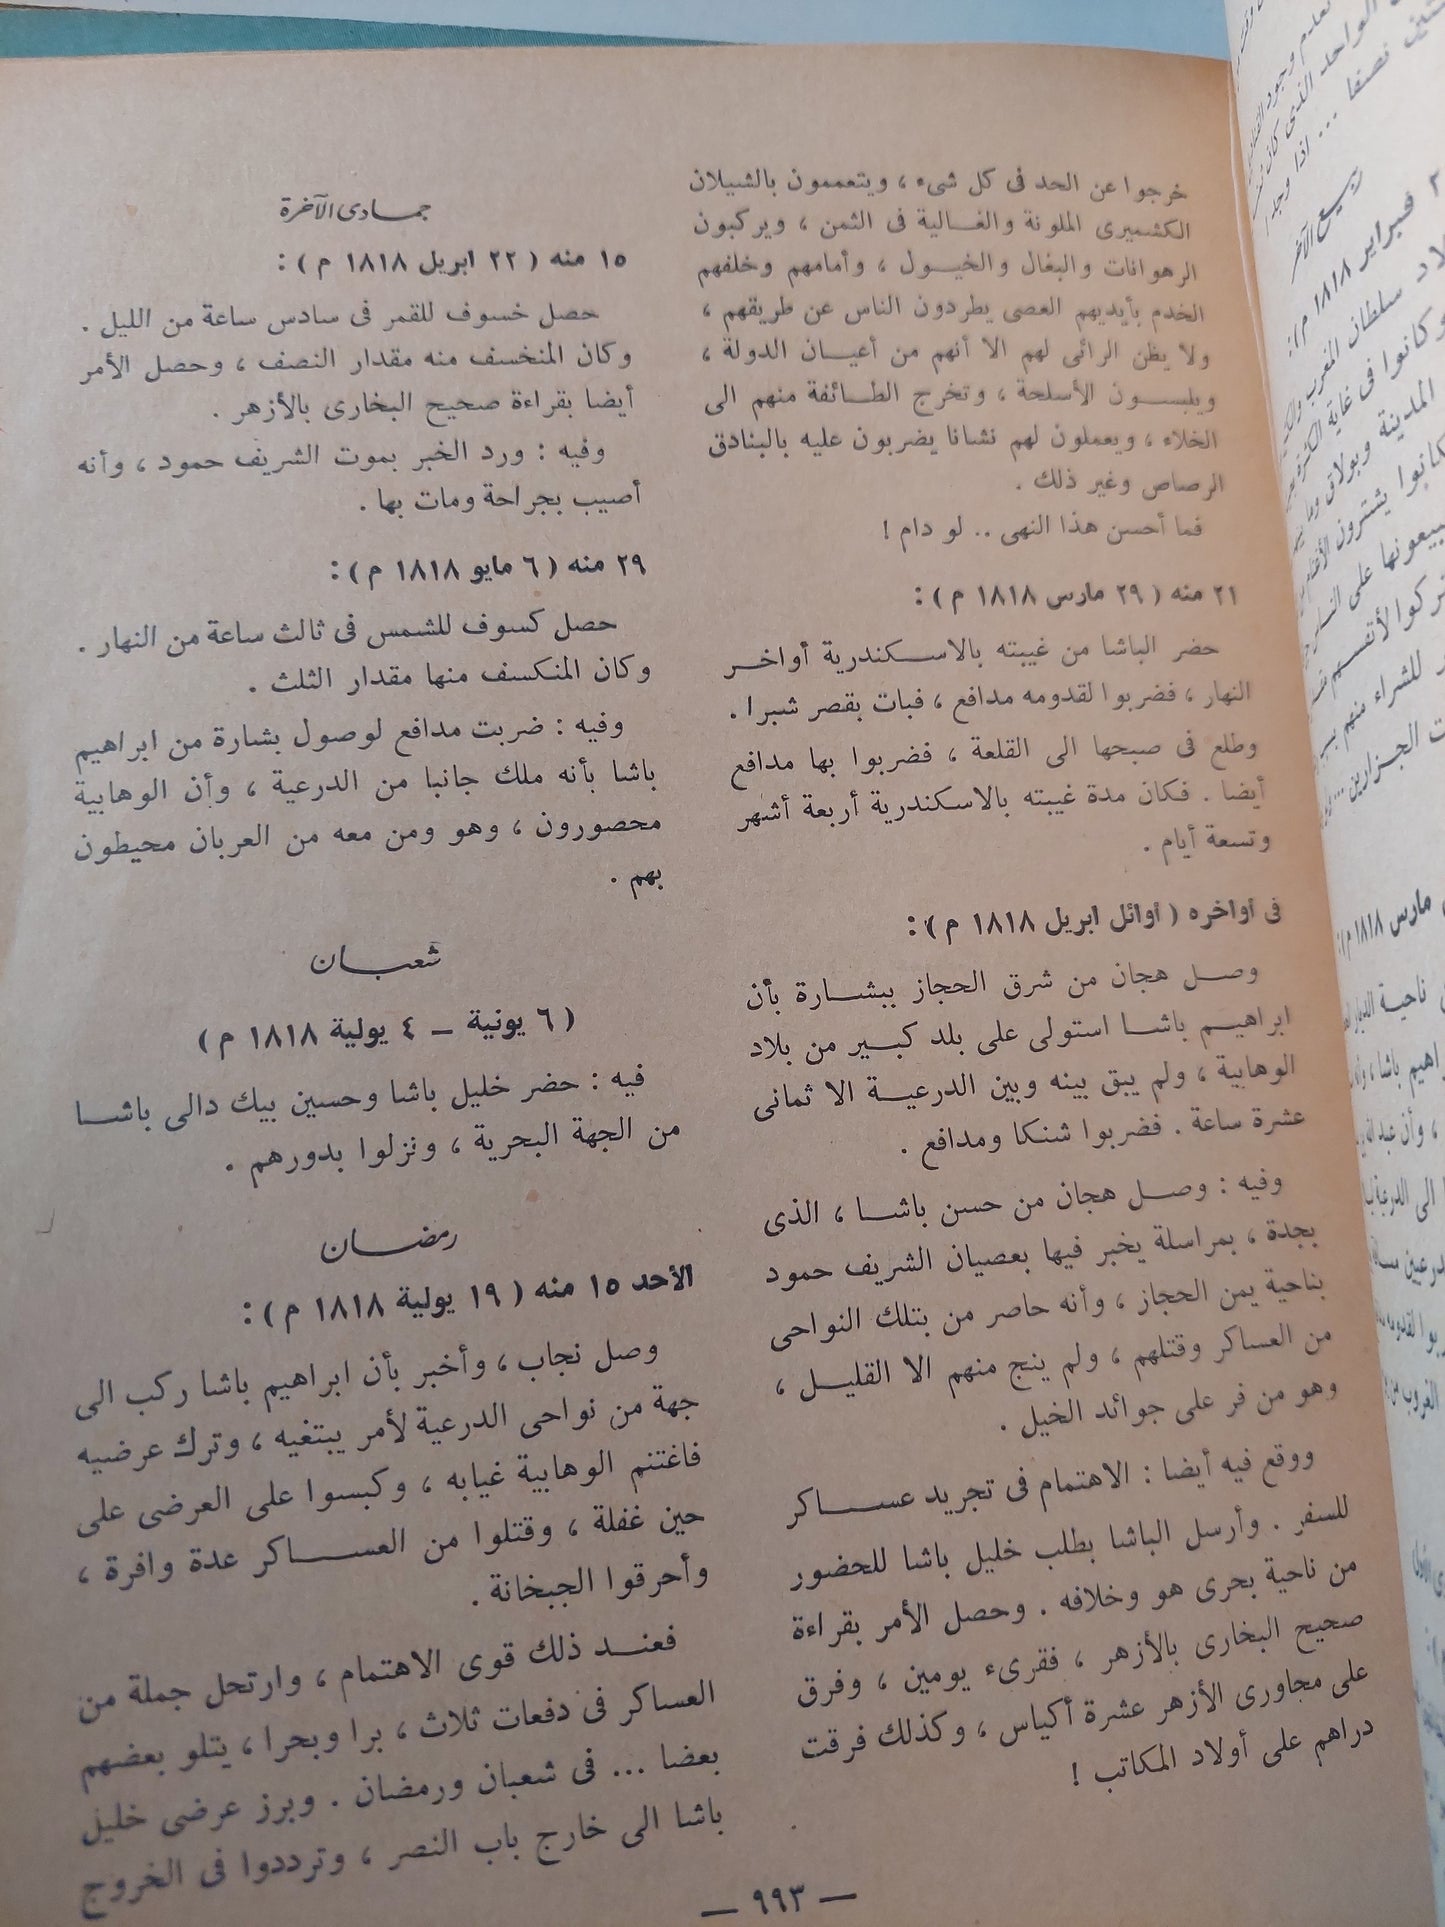 خرجوا عن الحد فى كل شىء ، ويتعممون بالشيلان
الكشميرى الملونة والغالية فى الثمن ، ويركبون
الرهوانات والبغال والخيول ، وأمامهم وخلفهم
الخدم بأيديهم العصى يطردون الناس عن طريقهم ،
ولا يظن الرائى لهم الا أنهم من أعيان الدولة ،
ويلبسون الأسلحة ، وتخرج الطائفة منهم الى
الخلاء ، ويعملون لهم نشانا يضربون عليه بالبنادق
الرصاص وغير ذلك .
فما أحسن هذا النهى .. لو دام !
٢١ منه ( ٢٩ مارس ١٨١٨ م ) :
حضر الباشا من غيبته بالاسكندرية أواخر
النهار ، فضربوا لقدومه مدافع ، فبات بقصر شبرا .
وطلع فى صبحها الى القلعة ، فضربوا بها مدافع
أيضا . فكان مدة غيبته بالاسكندرية أربعة أشهر
وتسعة أيام .
فى أواخره ( أوائل ابريل ١٨١٨ م ) :
وصل هجان من شرق الحجاز ببشارة بأن
ابراهيم باشا استولى على بلد كبير من بلاد
الوهابية ، ولم يبق بينه وبين الدرعية الا ثمانى
عشرة ساعة . فضربوا شنكا ومدافع .
وفيه : وصل هجان من حسن باشا ، الذى
بجدة ، بمراسلة يخبر فيها بعصيان الشريف حمود
بناحية يمن الحجاز ، وأنه حاصر من بتلك النواحى
من العساكر وقتلهم ، ولم ينج منهم الا القليل ،
وهو من فر على جوائد الخيل .
ووقع فيه أيضا : الاهتمام فى تجريد عساكر
للسفر . وأرسل الباشا بطلب خليل باشا للحضور
من ناحية بحرى هو وخلافه . وحصل الأمر بقراءة
صحيح البخارى بالأزهر ، فقرىء يومين ، وفرق
على مجاورى الأزهر عشرة أكياس ، وكذلك فرقت
دراهم على أولاد المكاتب !
جمادى الآخرة
١٥ منه ( ٢٢ ابريل ١٨١٨ م ) :
حصل خسوف للقمر فى سادس ساعة من الليل .
وكان المنخسف منه مقدار النصف ، وحصل الأمر
أيضا بقراءة صحيح البخارى بالأزهر .
وفيه : ورد الخبر بموت الشريف حمود ، وأنه
أصيب بجراحة ومات بها .
٢٩ منه ( ٦ مايو ١٨١٨ م ) :
حصل كسوف للشمس فى ثالث ساعة من النهار .
وكان المنكسف منها مقدار الثلث .
وفيه : ضربت مدافع لوصول بشارة من ابراهيم
باشا بأنه ملك جانبا من الدرعية ، وأن الوهابية
محصورون ، وهو ومن معه من العربان محيطون
بهم .
شعبان
( ٦ يونية – ٤ يولية ١٨١٨ م )
فيه : حضر خليل باشا وحسين بيك دالى باشا
من الجهة البحرية ، ونزلوا بدورهم .
رمضان
الأحد ١٥ منه ( ١٩ يولية ١٨١٨ م ) :
وصل نجاب ، وأخبر بأن ابراهيم باشا ركب الى
جهة من نواحى الدرعية لأمر يبتغيه ، وترك عرضيه
فاغتنم الوهابية غيابه ، وكبسوا على العرضى على
حين غفلة ، وقتلوا من العساكر عدة وافرة ،
وأحرقوا الجبخانة .
فعند ذلك قوى الاهتمام ، وارتحل جملة من
العساكر فى دفعات ثلاث ، برا وبحرا ، يتلو بعضهم
بعضا ... فى شعبان ورمضان . وبرز عرضى خليل
باشا الى خارج باب النصر ، وترددوا فى الخروج
— ٩٩٣ —
الواحد الذى كان
نصفا ... اذا وجد
ربيع الآخر
٢ فبراير ١٨١٨ م ) :
سلطان المغرب
وكانوا فى غاية الكثرة
المدينة وبولاق وما
كانوا يشترون الأغنام
يبيعونها على الناس
للشراء منهم
الجزارين ...
مارس ١٨١٨ م ) :
ناحية الديار
ابراهيم باشا ، وأنه
، وأن عبد الله
الى الدرعية
لقدومه
الغروب من